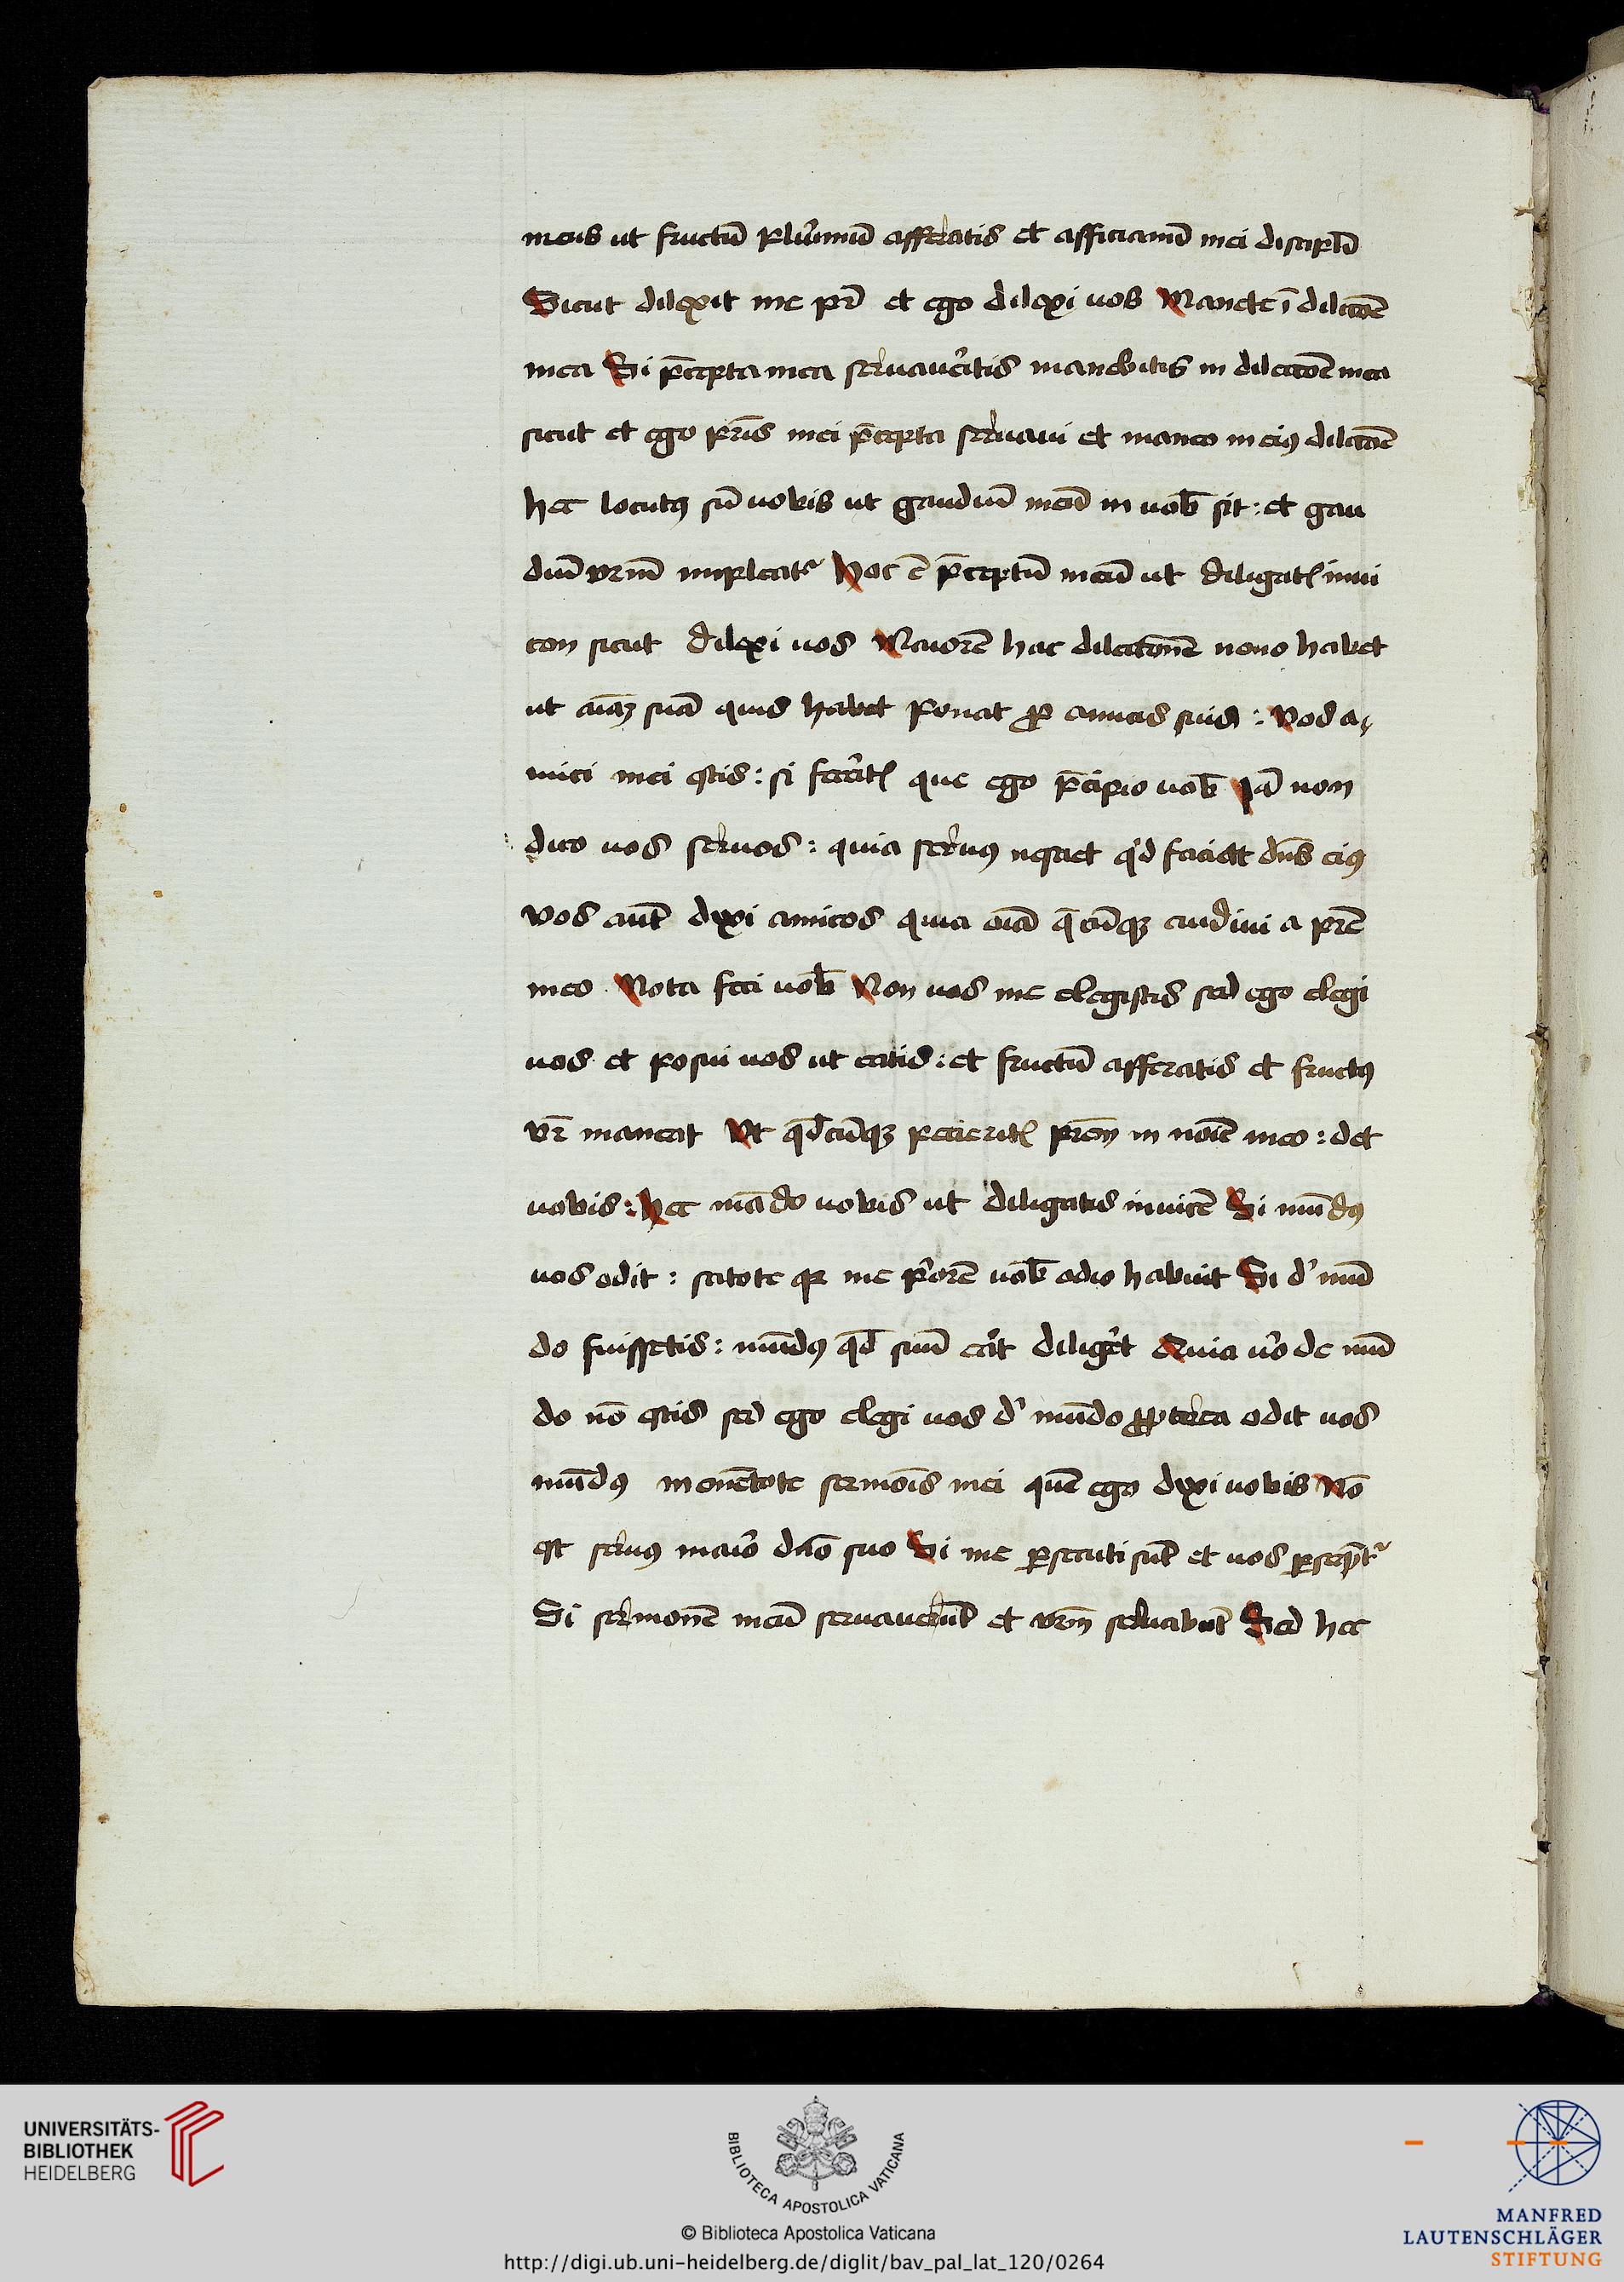 meus ut fructū plurimū afferatis et efficiamī mei discipłi
Sicut dilexit me pr̄ et ego dilexi uos Manete ī dilcōe
mea Si p̄cepta mea seruaueritis manebitis in dilectōe mea
sicut et ego pr̄is mei p̄cepta seruaui et maneo in eiꝰ dilectōe
hec locutꝰ sū uobis ut gaudiū meū in uob̄ sit : et gau
diū vr̄m impleatr Hoc ē p̄ceptū meū ut diligatis inui
cem sicut dilexi uos Maiorē hac dilectionē nemo habet
ut aīaꝫ suā quis habet ponat ꝓ amicis suis : Vos a,
mici mei estis : si fecerits que ego p̄cipio uob̄ Iā non
dico uos seruos : quia seruꝰ nescit qid faciat dn̄s eiꝰ
vos aut̄ dixi amicos quia oīa q̄cūqꝫ audiui a pr̄e
meo Nota feci uob̄ Non uos me elegistis sed ego elegi
uos et posui uos ut eatis : et fructū afferatis et fructꝰ
vr̄ maneat Ut qd̄cūqꝫ petierits prēm in noīe meo : det
uobis : Hec mādo uobis ut diligatis inuicē Si mūdꝰ
uos odit : scitote qꝛ me priorē uob̄ odio habuit Si d' mū
do fuissetis : mūdꝰ qd̄ suū erat diligeret Quia uero de mū
do nō estis sed ego elegi uos d' mūdo ꝓpterea odit uos
mūdꝰ mementote sermōis mei quē ego dixi uobis Nō
est seruꝰ maior dn̄o suo Si me ꝑsecuti sūt et uos ꝑseqn̄tr
Si sermonē meū seruauerūt et vr̄m seruabūt Sed hec
UNIVERSITÄTS-
BIBLIOTHEK
HEIDELBERG
BIBLIOTECA APOSTOLICA VATICANA
© Biblioteca Apostolica Vaticana
http://digi.ub.uni-heidelberg.de/diglit/bav_pal_lat_120/0264
MANFRED
LAUTENSCHLÄGER
STIFTUNG